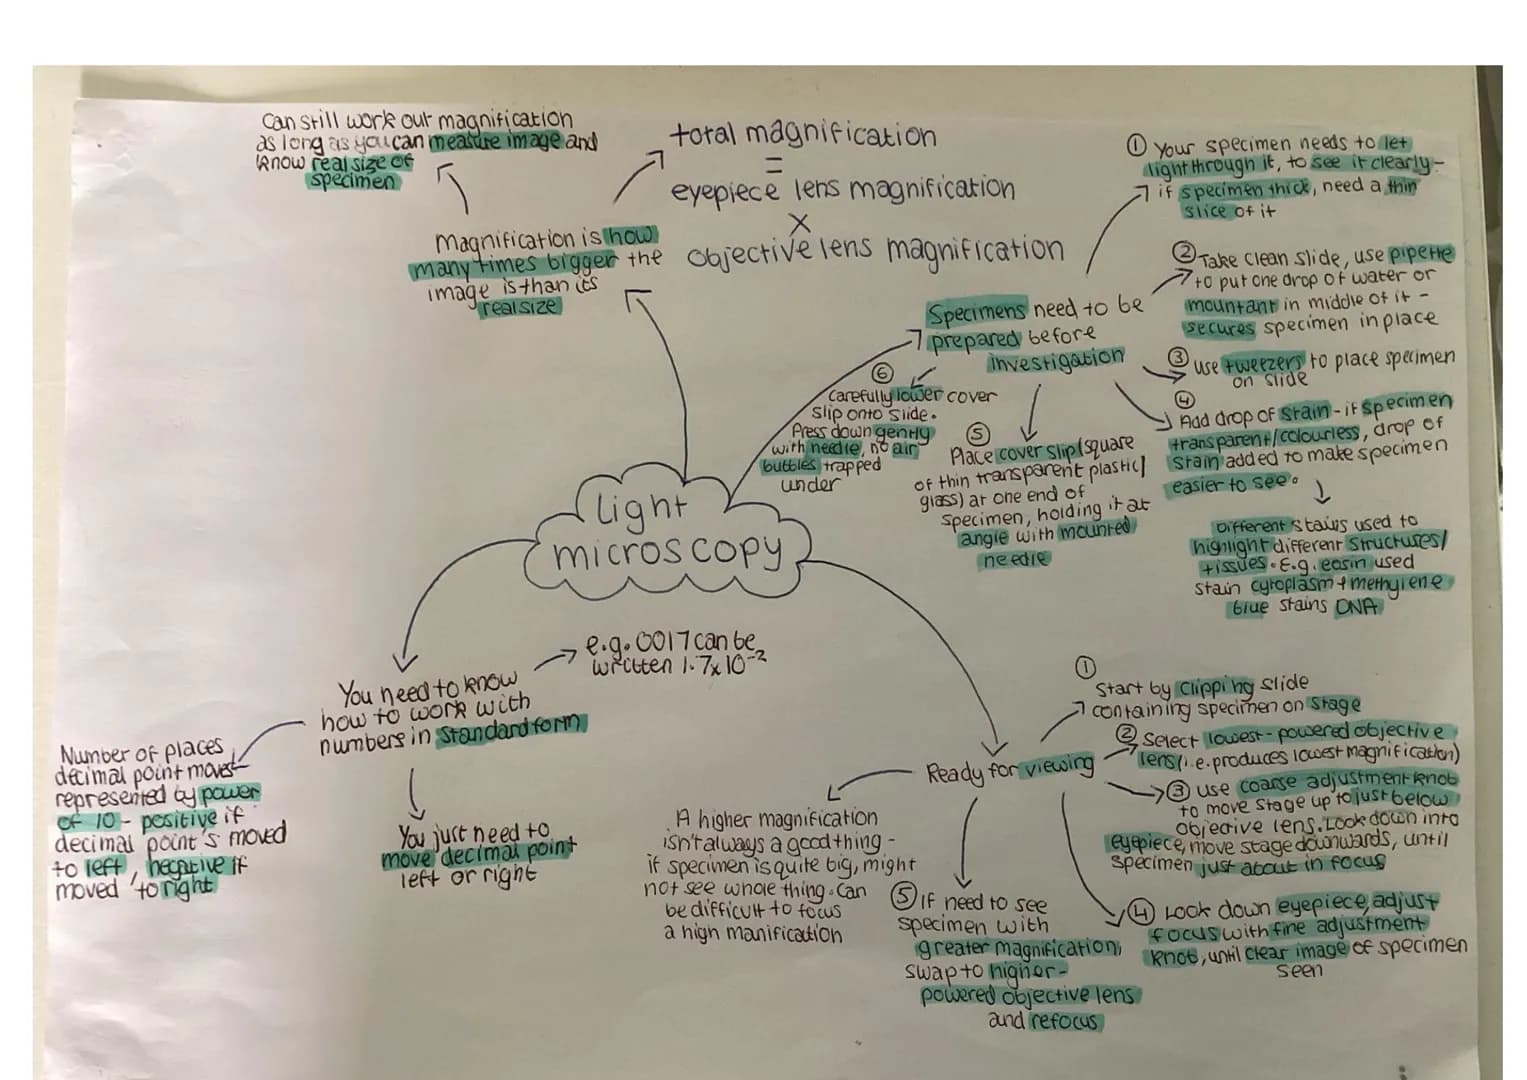 Can still work out magnification
as long as you can measure image and
know real size of
specimen
total magnification
=
eyepiece lens magnification
x
objective lens magnification
Magnification is how
many times bigger the
image is than its
real size
Specimens need to be
prepared before
investigation
① Your specimen needs to let
light through it, to see it clearly -
if specimen thick, need a thin
slice of it
② Take clean slide, use pipette
to put one drop of water or
mountant in middle of it -
secures specimen in place
③ use tweezers to place specimen
on slide
④
Add drop of stain - if specimen
transparent/colourless, drop of
stain added to make specimen
easier to see.
Different stains used to
highlight different structures/
tissues. E.g. eosin used
stain cytoplasm + methylene
blue stains DNA
⑤
Place cover slip (square
of thin transparent plastic/
glass) at one end of
specimen, holding it at
angle with mounted
needle
⑥
Carefully lower cover
slip onto slide.
Press down gently
with needle, no air
bubbles trapped
under
Light
microscopy
You need to know
how to work with
numbers in standard form
e.g. 0017 can be
written 1.7x10⁻²
Number of places
decimal point moves
represented by power
of 10 - positive if
decimal point's moved
to left, negative if
moved to right
You just need to
move decimal point
left or right
Ready for viewing
①
Start by clipping slide
containing specimen on stage
② Select lowest-powered objective
lens (i.e. produces lowest magnification)
③ use coarse adjustment knob
to move stage up to just below
objective lens. Look down into
eyepiece, move stage downwards, until
specimen just about in focus
④ Look down eyepiece, adjust
focus with fine adjustment
knob, until clear image of specimen
seen
⑤ If need to see
specimen with
greater magnification,
swap to higher-
powered objective lens
and refocus
A higher magnification
isn't always a good thing -
if specimen is quite big, might
not see whole thing. Can
be difficult to focus
a high manification